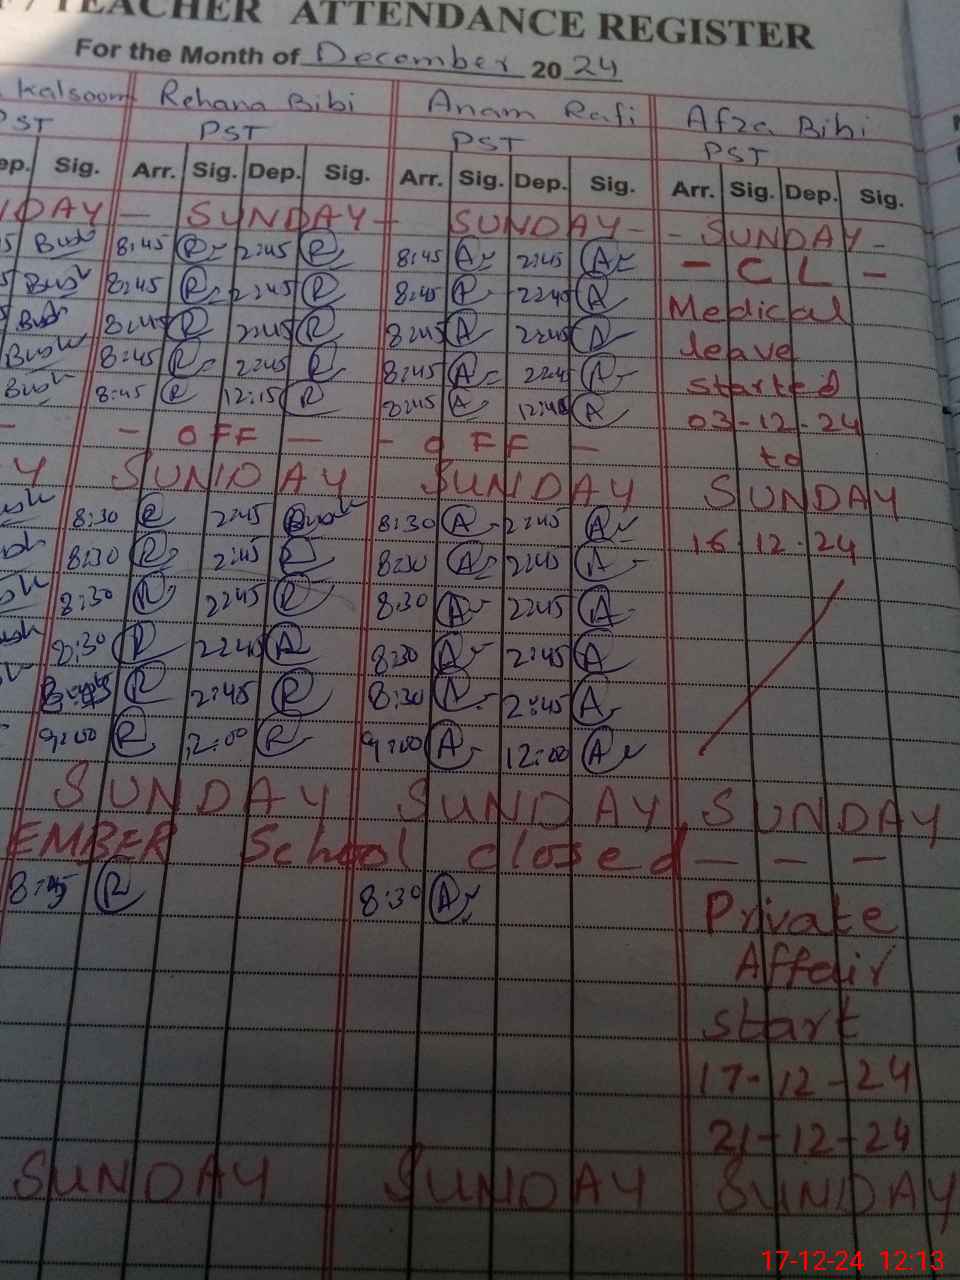 TEACHER ATTENDANCE REGISTER
For the Month of December 2024
Kalsoom Rehana Bibi Anam Rafi Afza Bibi
PST PST PST PST
Dep. Sig. Arr. Sig. Dep. Sig. Arr. Sig. Dep. Sig. Arr. Sig. Dep. Sig.
DAY - SUNDAY - SUNDAY - - SUNDAY -
8:45 R 2:45 R 8:45 A 2:45 A - CL -
8:45 R 2:45 R 8:45 A 2:45 A Medical
8:45 R 2:45 R 8:45 A 2:45 A leave
8:45 R 2:45 R 8:45 A 2:45 A started
8:45 R 12:15 R 8:45 A A 03-12-24
- - OFF - - OFF - to
Y SUNDAY SUNDAY SUNDAY
8:30 R 2:45 8:30 A 2:45 A 16-12-24
8:30 R 2:45 R 8:30 A 2:45 A
8:30 R 2:45 R 8:30 A 2:45 A
8:30 R 2:45 8:30 A 2:45 A
R 2:45 R 8:30 A 2:45 A
9:00 R 12:00 R 9:00 A 12:00 A
SUNDAY SUNDAY SUNDAY
EMBER School closed - - -
R 8:30 A Private
Affair
start
17-12-24
21-12-24
SUNDAY SUNDAY SUNDAY
17-12-24 12:13